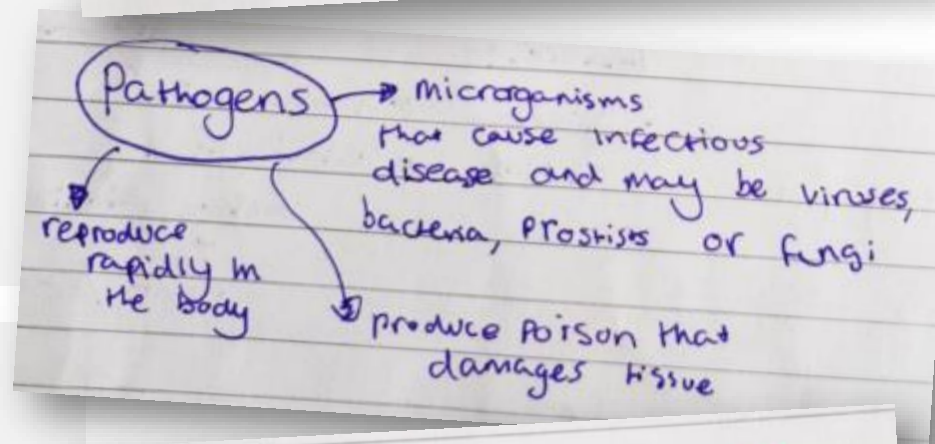 Pathogens
microrganisms
that cause infectious
disease and may be viruses,
bacteria, Prostists or fungi
reproduce
rapidly in
the body
produce poison that
damages tissue